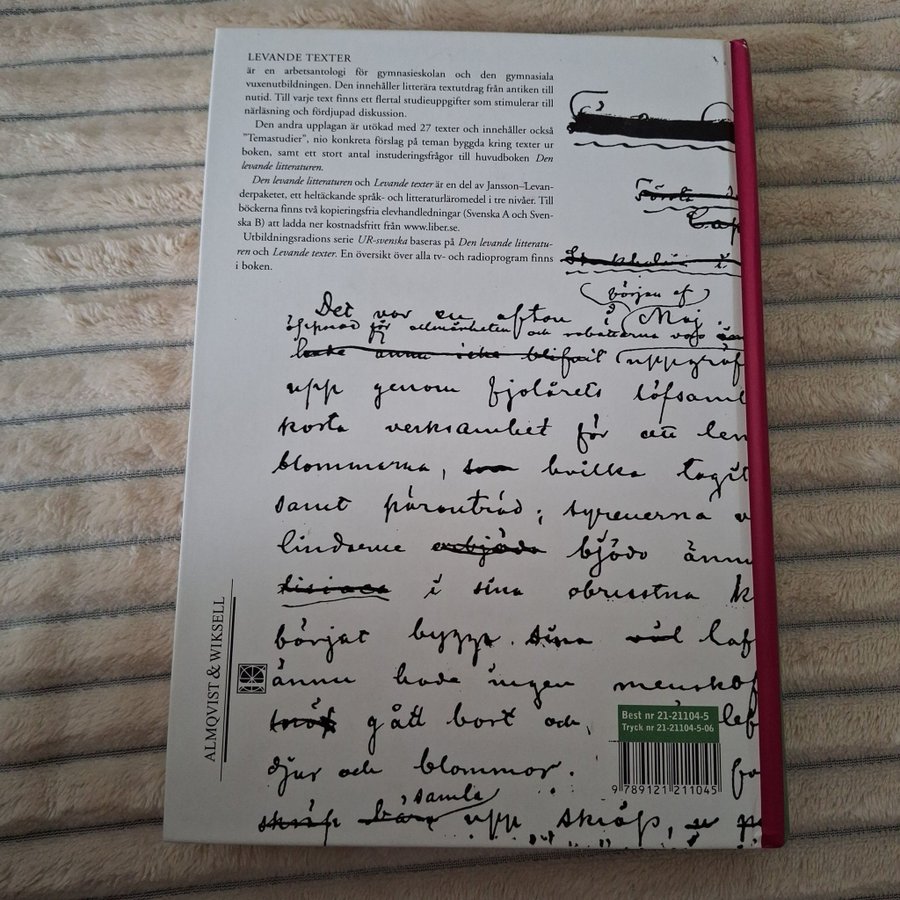 LEVANDE TEXTER
är en arbetsantologi för gymnasieskolan och den gymnasiala
vuxenutbildningen. Den innehåller litterära textutdrag från antiken till
nutid. Till varje text finns ett flertal studieuppgifter som stimulerar till
närläsning och fördjupad diskussion.
Den andra upplagan är utökad med 27 texter och innehåller också
"Temastudier", nio konkreta förslag på teman byggda kring texter ur
boken, samt ett stort antal instuderingsfrågor till huvudboken Den
levande litteraturen.
Den levande litteraturen och Levande texter är en del av Jansson–Levan-
derpaketet, ett heltäckande språk- och litteraturläromedel i tre nivåer. Till
böckerna finns två kopieringsfria elevhandledningar (Svenska A och Sven-
ska B) att ladda ner kostnadsfritt från www.liber.se.
Utbildningsradions serie UR-svenska baseras på Den levande litteratu-
ren och Levande texter. En översikt över alla tv- och radioprogram finns
i boken.
Första
Cap
Stockholm i
början af
Det var en afton i Maj.
öppnad för allmänheten och rabatterna voro
hade ännu icke blifvit uppgräf
upp genom fjolårets löfsaml
korta verksamhet för att
blommorna, som hvilka tagit
samt päronträd; syrenerna
lindarne erbjödo bjödo ännu
i sina obrustna k
börjat bygga. sina
ännu hade ingen mensk
gått bort och
djur och blommor.
samla
skräp upp skräp,
ALMQVIST & WIKSELL
Best nr 21-21104-5
Tryck nr 21-21104-5-06
9 789121 211045